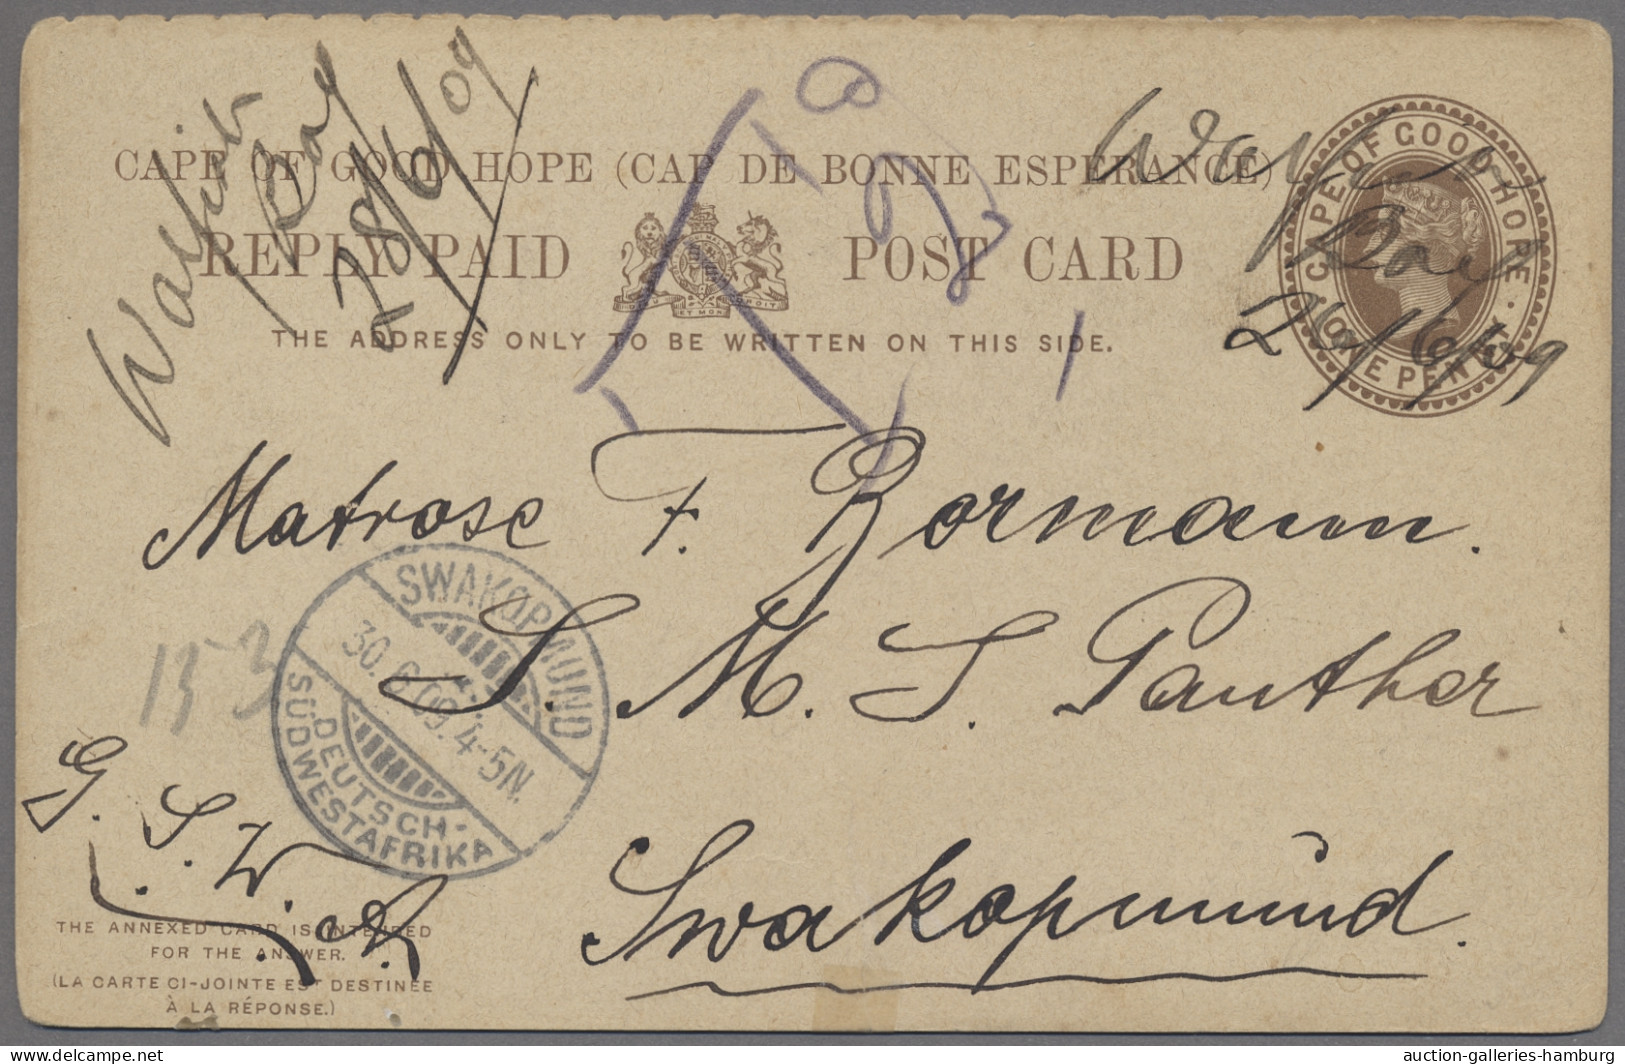 Walfish
Bay
28/6/09
CAPE OF GOOD HOPE (CAP DE BONNE ESPERANCE)
REPLY PAID POST CARD
THE ADDRESS ONLY TO BE WRITTEN ON THIS SIDE.
CAPE OF GOOD HOPE
ONE PENNY
Bay
Matrose F. Bormann.
S. M. S. Panther
Swakopmünd.
SWAKOPMUND
30.6.09. 4-5N.
DEUTSCH-
SÜDWESTAFRIKA
G. S. W. A.
THE ANNEXED CARD IS INTENDED
FOR THE ANSWER.
(LA CARTE CI-JOINTE EST DESTINÉE
À LA RÉPONSE.)
delcampe.net
auction-galleries-hamburg